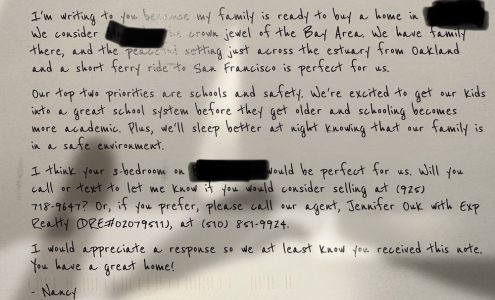 I'm writing to you because my family is ready to buy a home in
We consider crown jewel of the Bay Area. We have family
there, and the peaceful setting just across the estuary from Oakland
and a short ferry ride to San Francisco is perfect for us.
Our top two priorities are schools and safety. We're excited to get our kids
into a great school system before they get older and schooling becomes
more academic. Plus, we'll sleep better at night knowing that our family is
in a safe environment.
I think your 3-bedroom on would be perfect for us. Will you
call or text to let me know if you would consider selling at (925)
718-9647? Or, if you prefer, please call our agent, Jennifer Ouk with Exp
Realty (DRE#02079511), at (510) 851-9924.
I would appreciate a response so we at least know you received this note.
You have a great home!
- Nancy